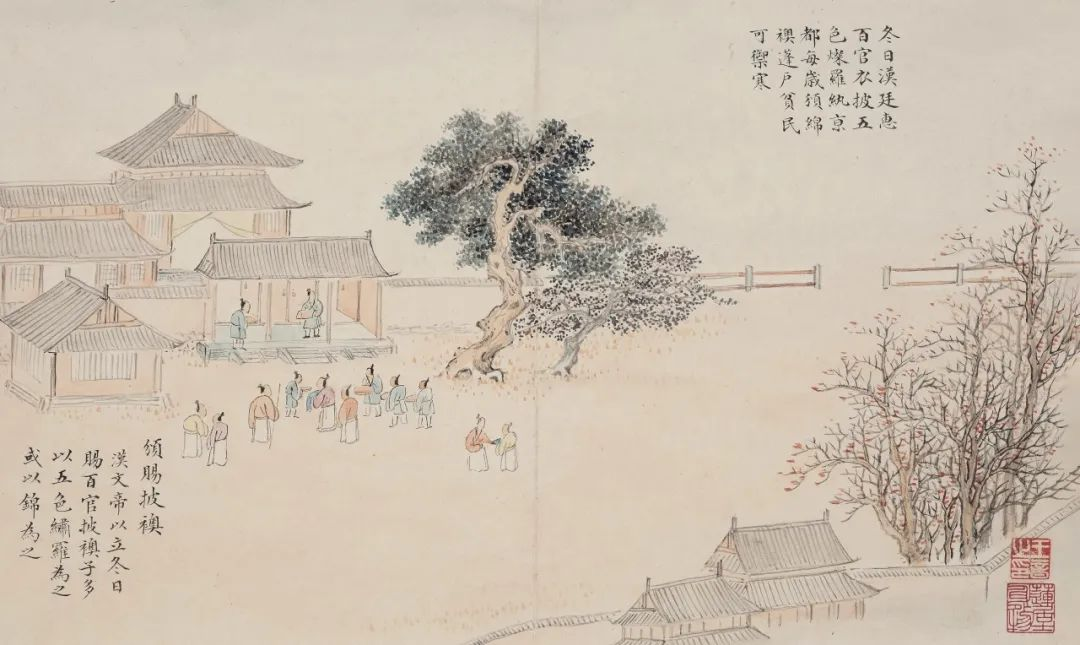 冬日漢廷惠
百官衣披五
色燦羅紈京
都每歲頒綿
襖蓬戶貧民
可禦寒
頒賜披襖
漢文帝以立冬日
賜百官披襖子多
以五色繡羅為之
或以錦為之